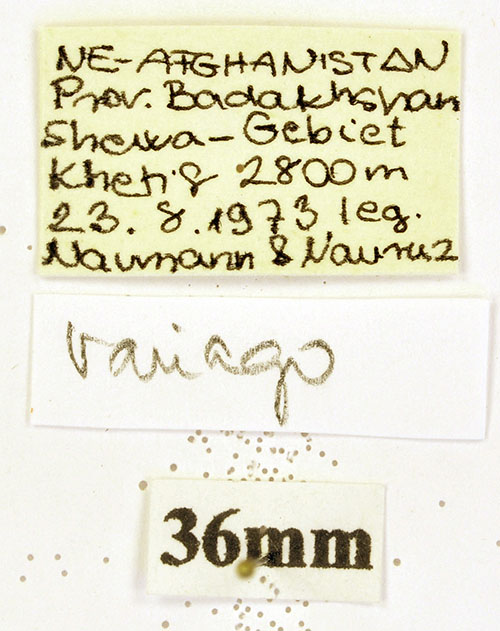 NE-AFGHANISTAN
Prov. Badakhshan
Shewa-Gebiet
2800m
23.8.1973, leg.
Naumann & Nauruz
variago
36mm